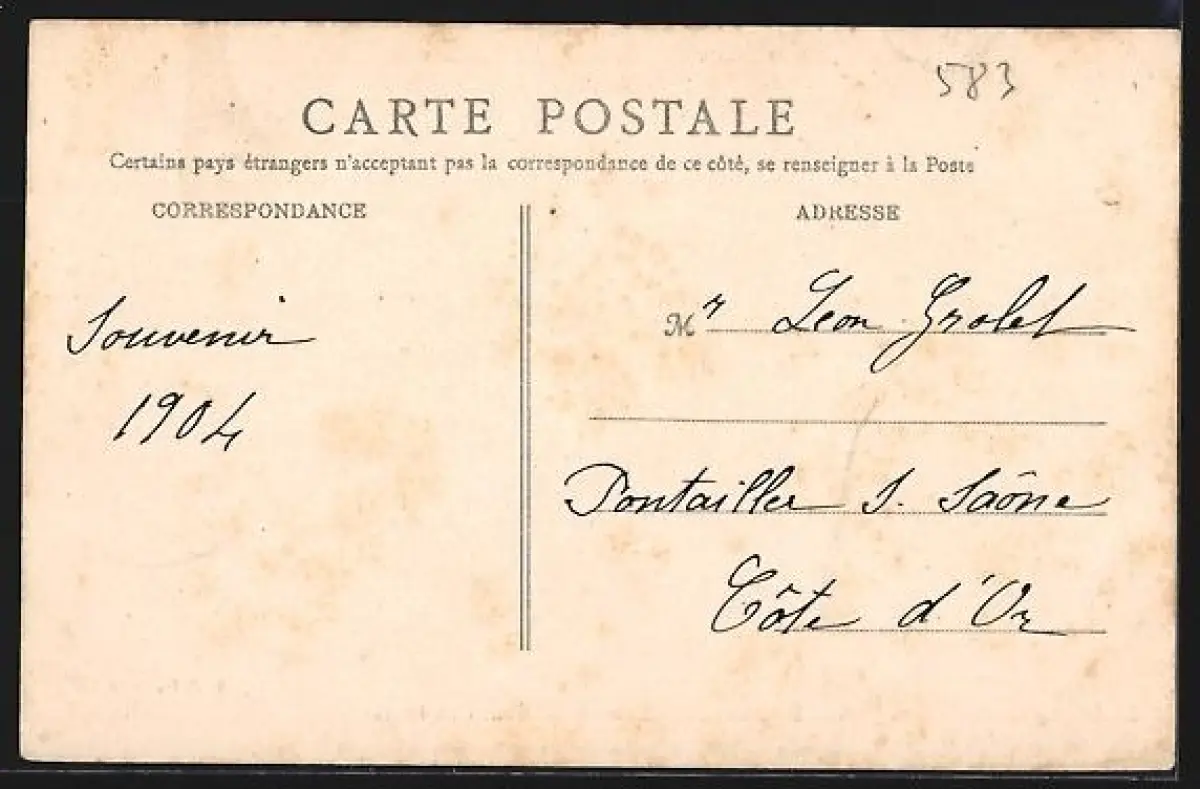 583
CARTE POSTALE
Certains pays étrangers n'acceptant pas la correspondance de ce côté, se renseigner à la Poste
CORRESPONDANCE
Souvenir
1904
ADRESSE
Mr Léon Grolet
Pontailler s. Saône
Côte d'Or